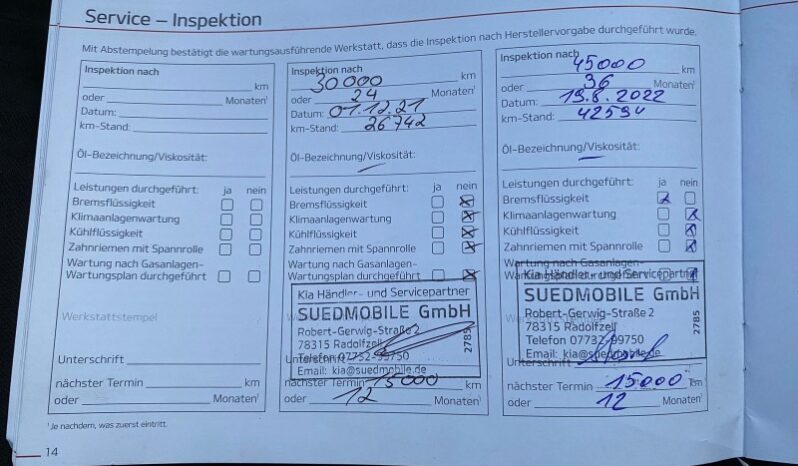 Service – Inspektion
Mit Abstempelung bestätigt die wartungsausführende Werkstatt, dass die Inspektion nach Herstellervorgabe durchgeführt wurde.
Inspektion nach
km
oder Monaten¹
Datum:
km-Stand:
Öl-Bezeichnung/Viskosität:
Leistungen durchgeführt: ja nein
Bremsflüssigkeit
Klimaanlagenwartung
Kühlflüssigkeit
Zahnriemen mit Spannrolle
Wartung nach Gasanlagen-
Wartungsplan durchgeführt
Werkstattstempel
Unterschrift
nächster Termin km
oder Monaten¹
Inspektion nach
30000 km
oder 24 Monaten¹
Datum: 01.12.21
km-Stand: 26742
Öl-Bezeichnung/Viskosität:
Leistungen durchgeführt: ja nein
Bremsflüssigkeit
Klimaanlagenwartung
Kühlflüssigkeit
Zahnriemen mit Spannrolle
Wartung nach Gasanlagen-
Wartungsplan durchgeführt
Kia Händler- und Servicepartner
SUEDMOBILE GmbH
Robert-Gerwig-Straße 2
78315 Radolfzell
Telefon 07732-99750
Email: kia@suedmobile.de
2785
Unterschrift
nächster Termin 15000 km
oder 12 Monaten¹
Inspektion nach
45000 km
oder 36 Monaten¹
Datum: 19.8.2022
km-Stand: 42594
Öl-Bezeichnung/Viskosität:
Leistungen durchgeführt: ja nein
Bremsflüssigkeit
Klimaanlagenwartung
Kühlflüssigkeit
Zahnriemen mit Spannrolle
Wartung nach Gasanlagen-
Wartungsplan durchgeführt
Kia Händler- und Servicepartner
SUEDMOBILE GmbH
Robert-Gerwig-Straße 2
78315 Radolfzell
Telefon 07732-99750
Email: kia@suedmobile.de
2785
Unterschrift
nächster Termin 15000 km
oder 12 Monaten¹
¹ Je nachdem, was zuerst eintritt.
14